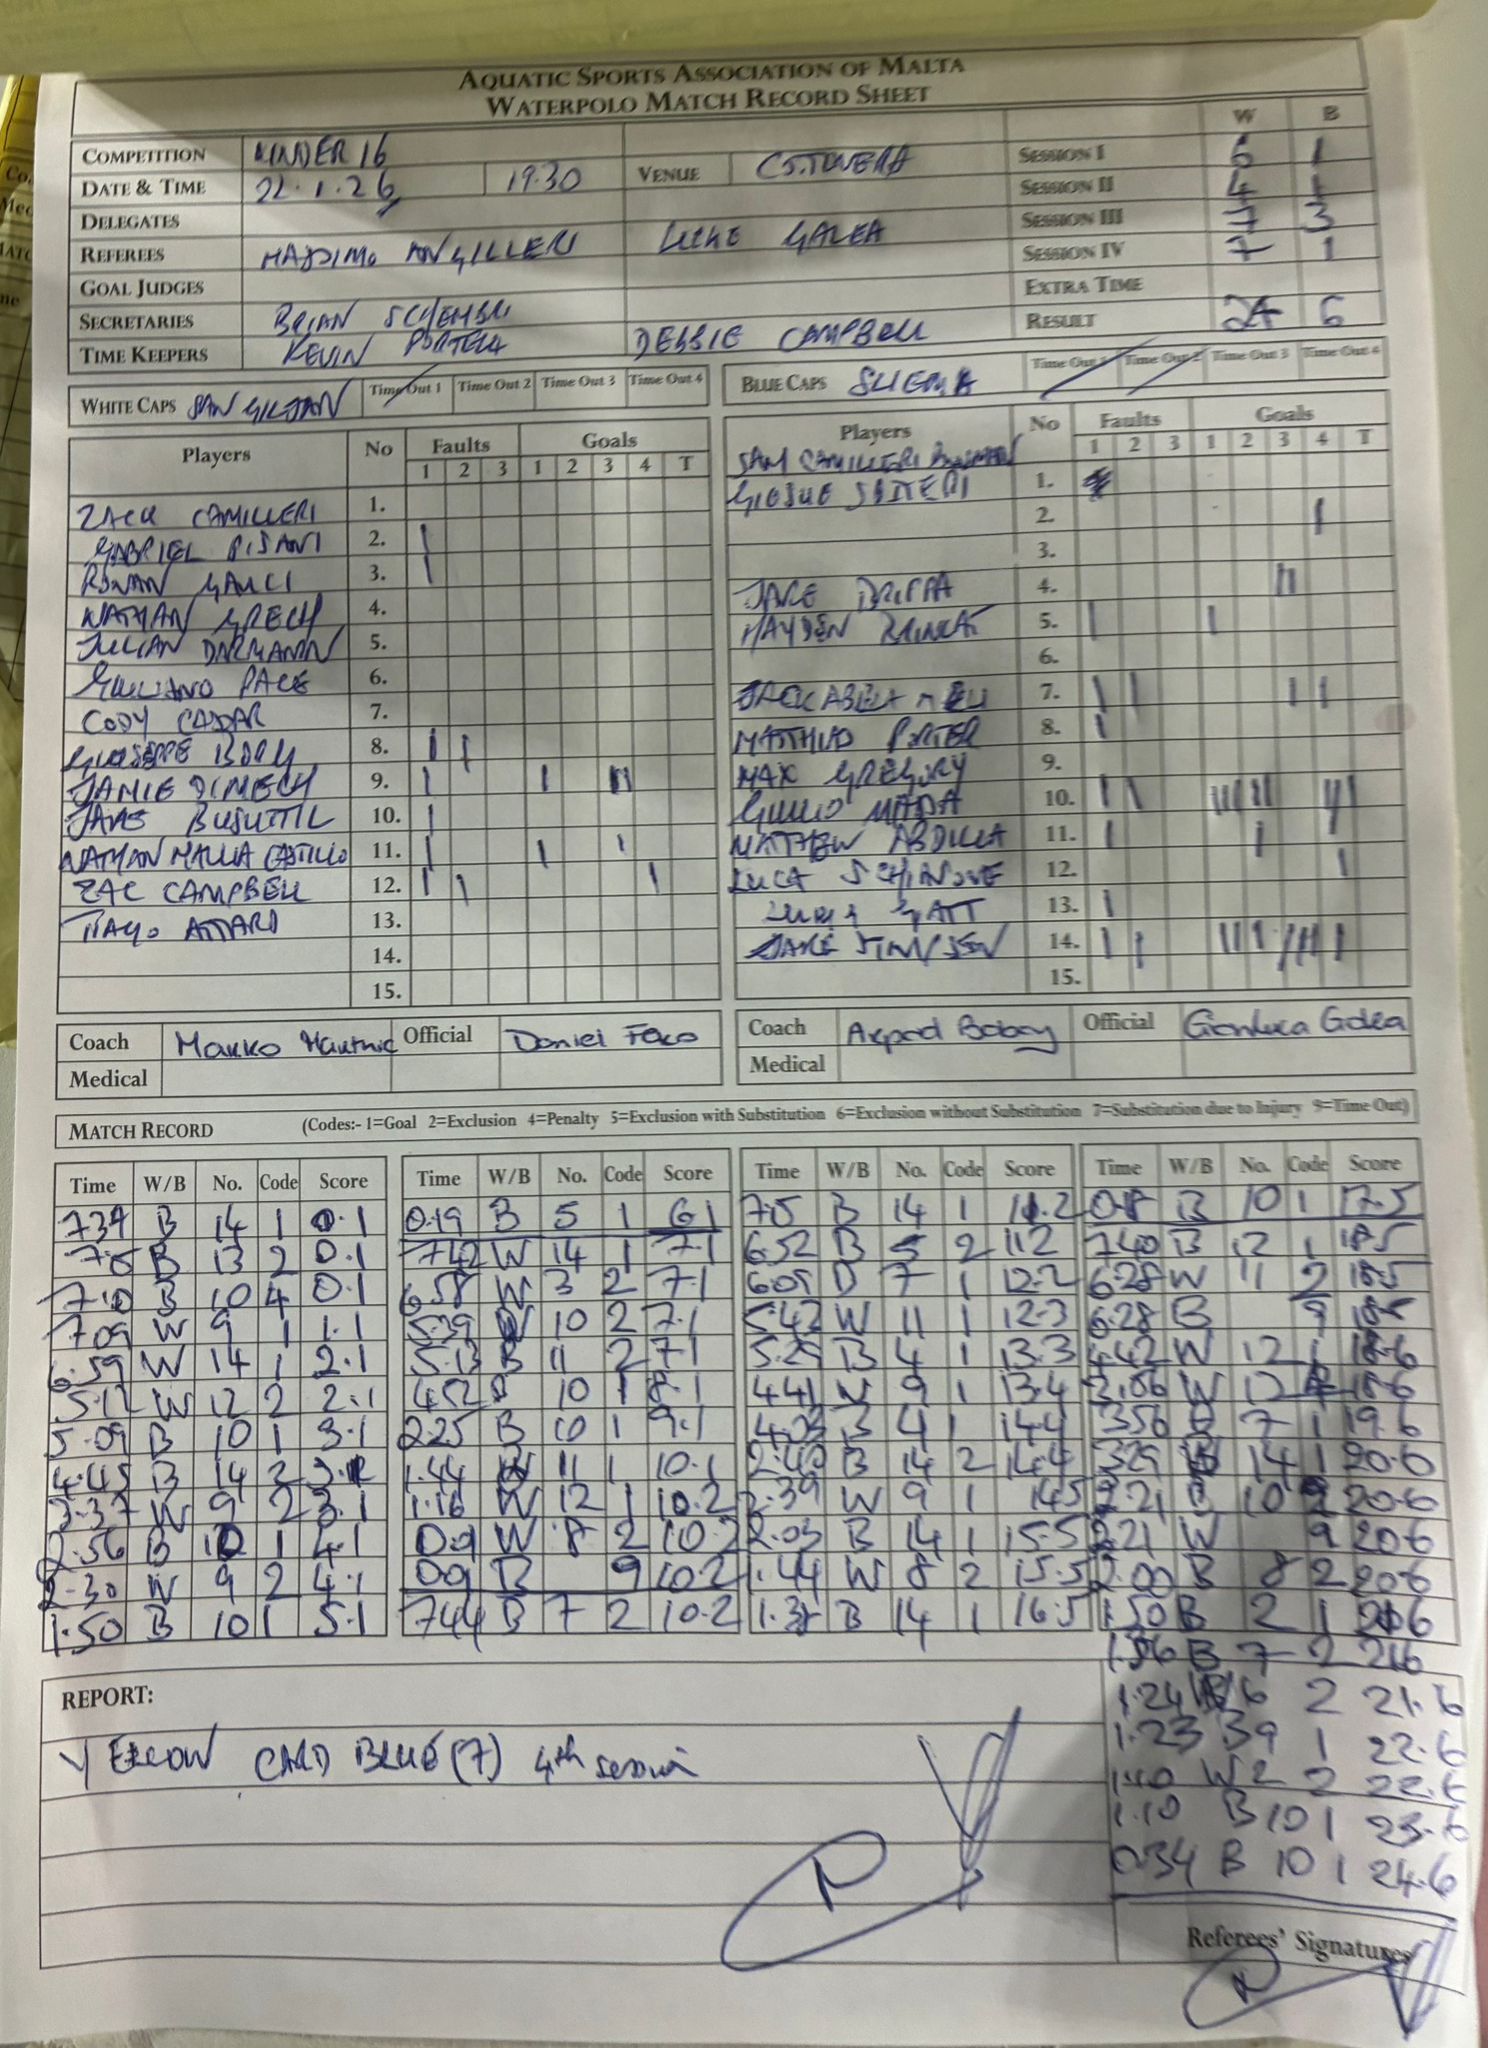 AQUATIC SPORTS ASSOCIATION OF MALTA
WATERPOLO MATCH RECORD SHEET
W B
COMPETITION UNDER 16 SESSION I 6 1
DATE & TIME 22.1.26 19.30 VENUE SESSION II 4 1
DELEGATES SESSION III 7 3
REFEREES LUKE GALEA SESSION IV 7 1
GOAL JUDGES EXTRA TIME
SECRETARIES BRIAN SCHEMBRI RESULT 24 6
TIME KEEPERS KEVIN PORTELLI DEBBIE CAMPBELL
WHITE CAPS SAN GILJAN Time Out 1 Time Out 2 Time Out 3 Time Out 4
BLUE CAPS SLIEMA Time Out 1 Time Out 2 Time Out 3 Time Out 4
Players No Faults Goals
1 2 3 1 2 3 4 T
ZACK CAMILLERI 1.
GABRIEL PISANI 2.
ROMAN GAUCI 3.
NATHAN GRECH 4.
JULIAN 5.
GIULIANO PACE 6.
CODY CASSAR 7.
GIUSEPPE BORG 8.
JAMIE DIMECH 9.
JAKE BUSUTTIL 10.
NATHAN MALLIA CASTILLO 11.
ZAC CAMPBELL 12.
TIAGO ATTARD 13.
14.
15.
Players No Faults Goals
1 2 3 1 2 3 4 T
SAM CAMILLERI
GIESUE SPITERI 1.
2.
3.
JAKE 4.
HAYDEN 5.
6.
JACK ABELA 7.
PORTER 8.
MAX GREGORY 9.
GIULIO 10.
MATTHEW ABDILLA 11.
LUCA SCHIAVONE 12.
GATT 13.
JAKE 14.
15.
Coach Marko Official Daniel
Medical
Coach Arpad Babay Official Gianluca Galea
Medical
MATCH RECORD (Codes:- 1=Goal 2=Exclusion 4=Penalty 5=Exclusion with Substitution 6=Exclusion without Substitution 7=Substitution due to Injury 9=Time Out)
Time W/B No. Code Score
7.34 B 14 1 0.1
7.15 B 13 2 0.1
7.10 B 10 4 0.1
7.09 W 9 1 1.1
6.59 W 14 1 2.1
5.12 W 12 2 2.1
5.09 B 10 1 3.1
4.45 B 14 2
3.37 W 9 2 3.1
2.56 B 10 1 4.1
2.30 W 9 2 4.1
1.50 B 10 1 5.1
Time W/B No. Code Score
0.19 B 5 1 6.1
7.42 W 14 1 7.1
6.58 W 3 2 7.1
5.39 W 10 2 7.1
5.13 B 11 2 7.1
4.52 B 10 1 8.1
2.25 B 10 1 9.1
1.44 11 1 10.1
1.16 W 12 1 10.2
0.9 W 8 2 10.2
0.9 B 9 10.2
7.44 B 7 2 10.2
Time W/B No. Code Score
7.15 B 14 1 11.2
6.52 B 5 2 11.2
6.09 B 7 1 12.2
5.42 W 11 1 12.3
5.29 B 4 1 13.3
4.41 W 9 1 13.4
4.03 B 4 1 14.4
2.40 B 14 2 14.4
2.39 W 9 1 14.5
2.03 B 14 1 15.5
1.44 W 8 2 15.5
1.31 B 14 1 16.5
Time W/B No. Code Score
0.18 B 10 1 17.5
7.40 B 12 1 18.5
6.28 W 11 2 18.5
6.28 B 9 18.5
4.42 W 12 1 18.6
W 12 18.6
3.56 B 7 1 19.6
3.29 14 1 20.6
2.21 B 10 2 20.6
2.21 W 9 20.6
2.00 B 8 2 20.6
1.50 B 2 1 21.6
B 7 2 21.6
1.24 6 2 21.6
1.23 B 9 1 22.6
W 2 2 22.6
1.10 B 10 1 23.6
0.34 B 10 1 24.6
REPORT:
YELLOW CARD BLUE (7) 4th session
Referees' Signatures